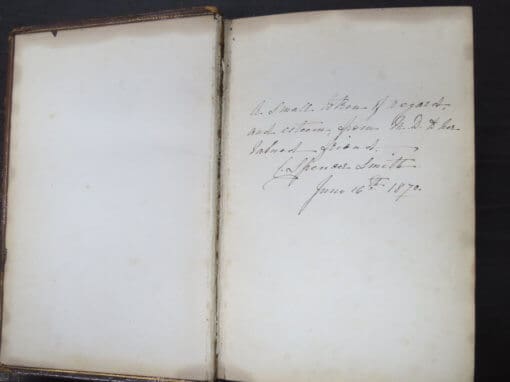 A small token of regard
and esteem from M. D. to her
valued friend.
J. Spencer Smith
June 16th 1870.